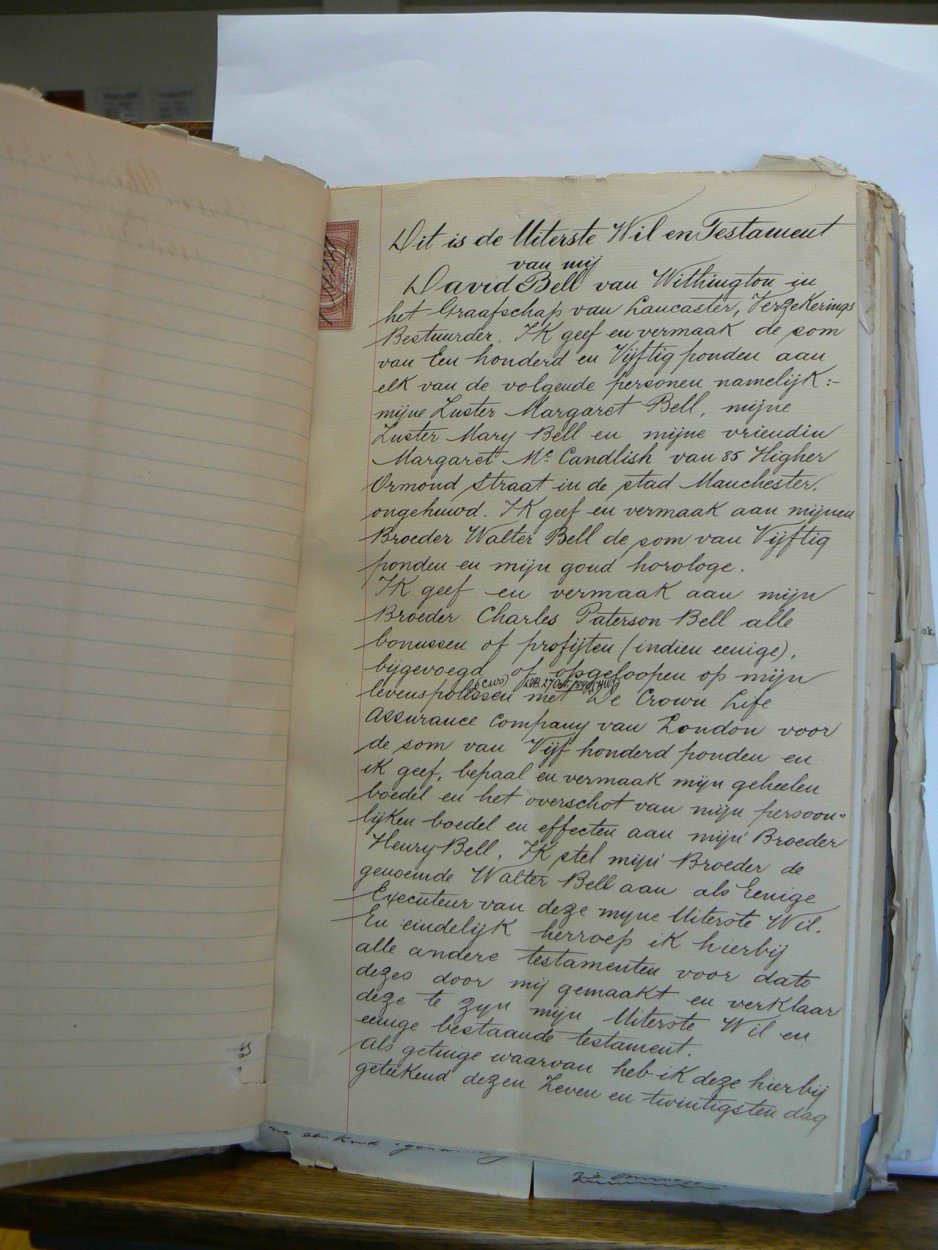 Dit is de Uiterste Wil en Testament
van mij
David Bell van Withington in
het Graafschap van Lancaster, Verzekerings
Bestuurder. IK geef en vermaak de som
van Een honderd en Vijftig ponden aan
elk van de volgende personen namelijk:-
mijne Zuster Margaret Bell, mijne
Zuster Mary Bell en mijne vriendin
Margaret Mc Candlish van 85 Higher
Ormond Straat in de stad Manchester,
ongehuwd. IK geef en vermaak aan mijnen
Broeder Walter Bell de som van Vijftig
ponden en mijn goud horologe.
IK geef en vermaak aan mijn
Broeder Charles Paterson Bell alle
bonussen of profijten (indien eenige),
bijgevoegd of opgeloopen op mijn
levenspolissen met De Crown Life
Assurance Company van London voor
de som van Vijf honderd ponden en
ik geef, bepaal en vermaak mijn geheelen
boedel en het overschot van mijn persoon"
lijken boedel en effecten aan mijn Broeder
Henry Bell. IK stel mijn Broeder de
genoemde Walter Bell aan als Eenige
Executeur van deze mijne Uiterste Wil.
En eindelijk herroep ik hierbij
alle andere testamenten voor dato
dezes door mij gemaakt en verklaar
deze te zyn mijn Uiterste Wil en
eenige bestaande testament.
Als getuige waarvan heb ik deze hierbij
geteekend dezen Zeven en twintigsten dag
ok.